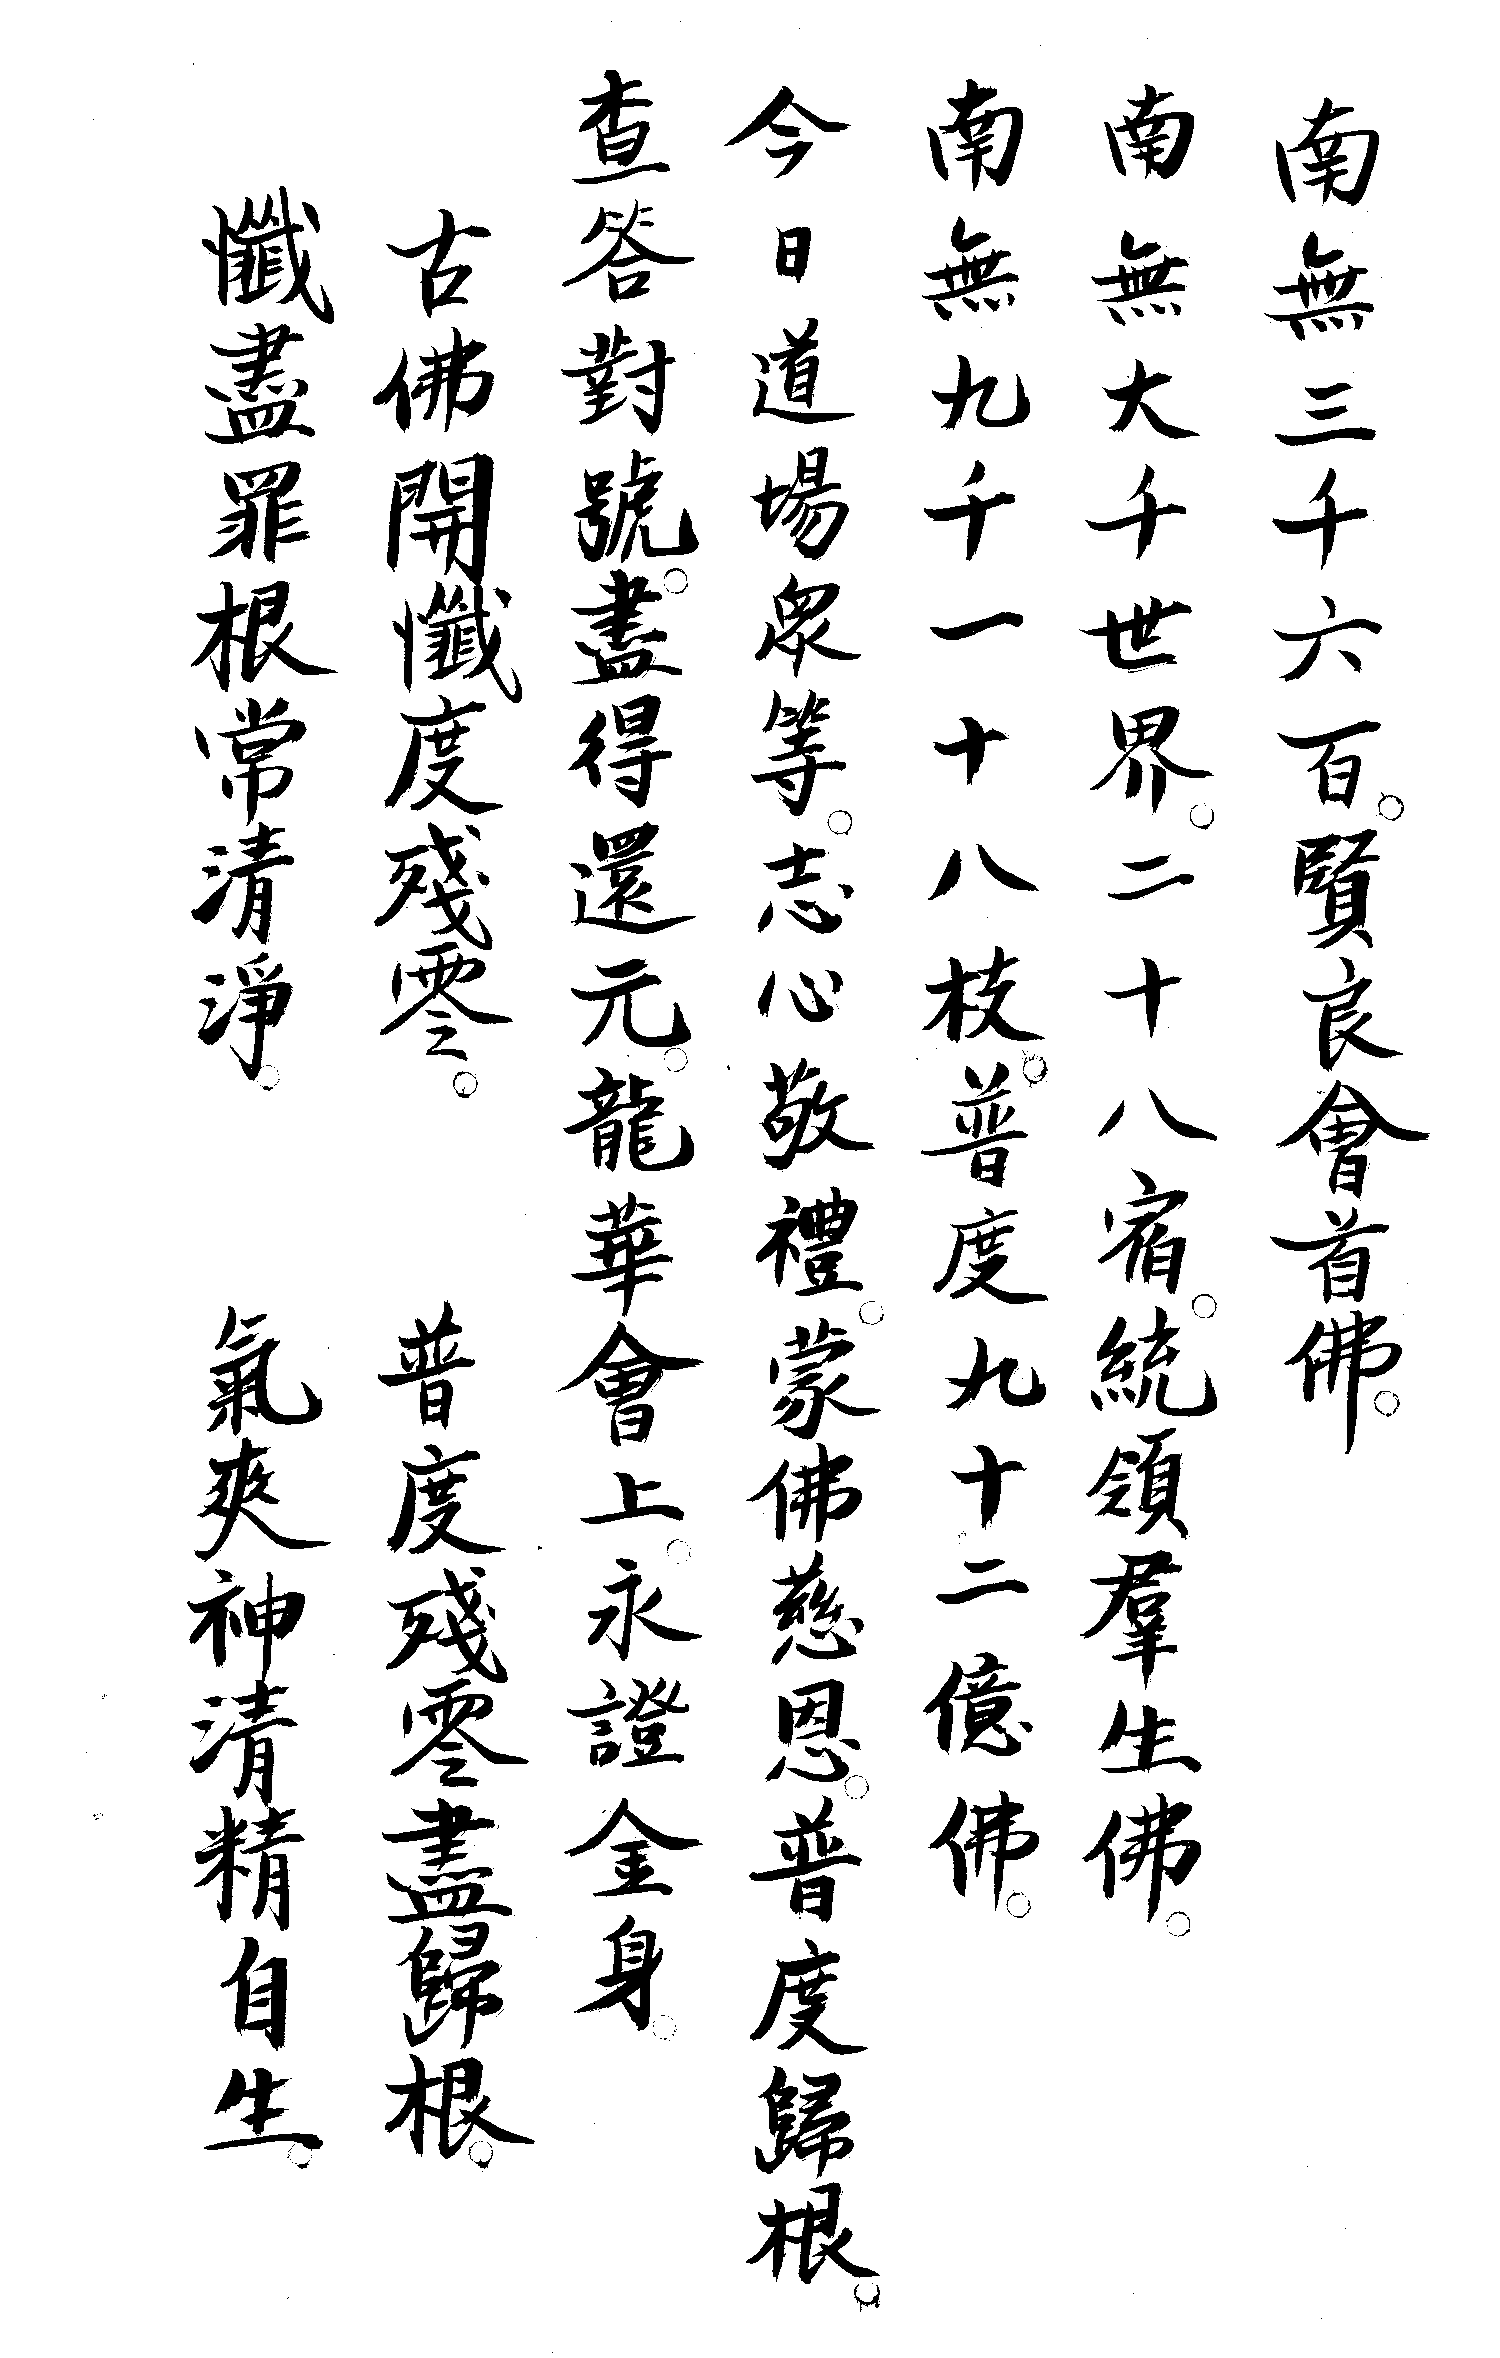 南無三千六百。賢良會首佛。
南無大千世界。二十八宿。統領羣生佛。
南無九千一十八枝。普度九十二億佛。
今日道場眾等。志心敬禮。蒙佛慈恩。普度歸根。
查答對號。盡得還元。龍華會上。永證金身。
古佛開懺度殘零。　普度殘零盡歸根。
懺盡罪根常清淨。　氣爽神清精自生。